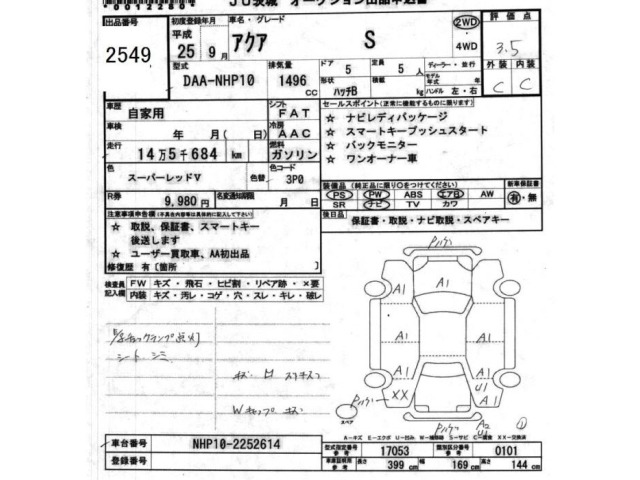 JU茨城 オークション出品申込書
出品番号 初度登録年月 車名・グレード 2WD 評価点
2549 平成 25 9月 アクア S 4WD 3.5
型式 排気量 ドア 定員 ディーラー・並行 外装 内装
DAA-NHP10 1496 CC 5 5人 モデル年式 年 C C
形状 ハッチB 積載 kg ハンドル 左・右
車歴 自家用 シフト FAT セールスポイント(正常に機能するものに限ります)
車検 年 月( 日) 冷房 AAC ☆ ナビレディパッケージ
☆ スマートキープッシュスタート
走行 14万5千684 km 燃料 ガソリン ☆ バックモニター
☆ ワンオーナー車
色 スーパーレッドV 色替 色コード 3P0
装備品(純正品に限り○をつけてください) 新車保証書
R券 9,980円 名変期限 月 日 PS PW ABS エアB AW 有・無
SR ナビ TV カワ
注意事項申告欄(不具合内容等は具体的に記入して下さい) 後日品 保証書・取説・ナビ取説・スペアキー
☆ 取説、保証書、スマートキー
後送します
☆ ユーザー買取車、AA初出品
修復歴 有〔箇所 〕
検査員記入欄 FW キズ・飛石・ヒビ割・リペア跡・×要
内装 キズ・汚レ・コゲ・穴・スレ・キレ・破レ
A1
A1 A1
A1 A1
A1 A1
U1
XX XX
A2
U1
シート シミ
Wキャップ キズ
スペア
①
A-キズ E-エクボ U-凹み W-補修跡 S-サビ C-腐食 XX-交換済
車台番号 NHP10-2252614 型式指定番号 参考 17053 類別区分番号 参考 0101
登録番号 車庫証明用 参考 長さ 399 cm 幅 169 cm 高さ 144 cm